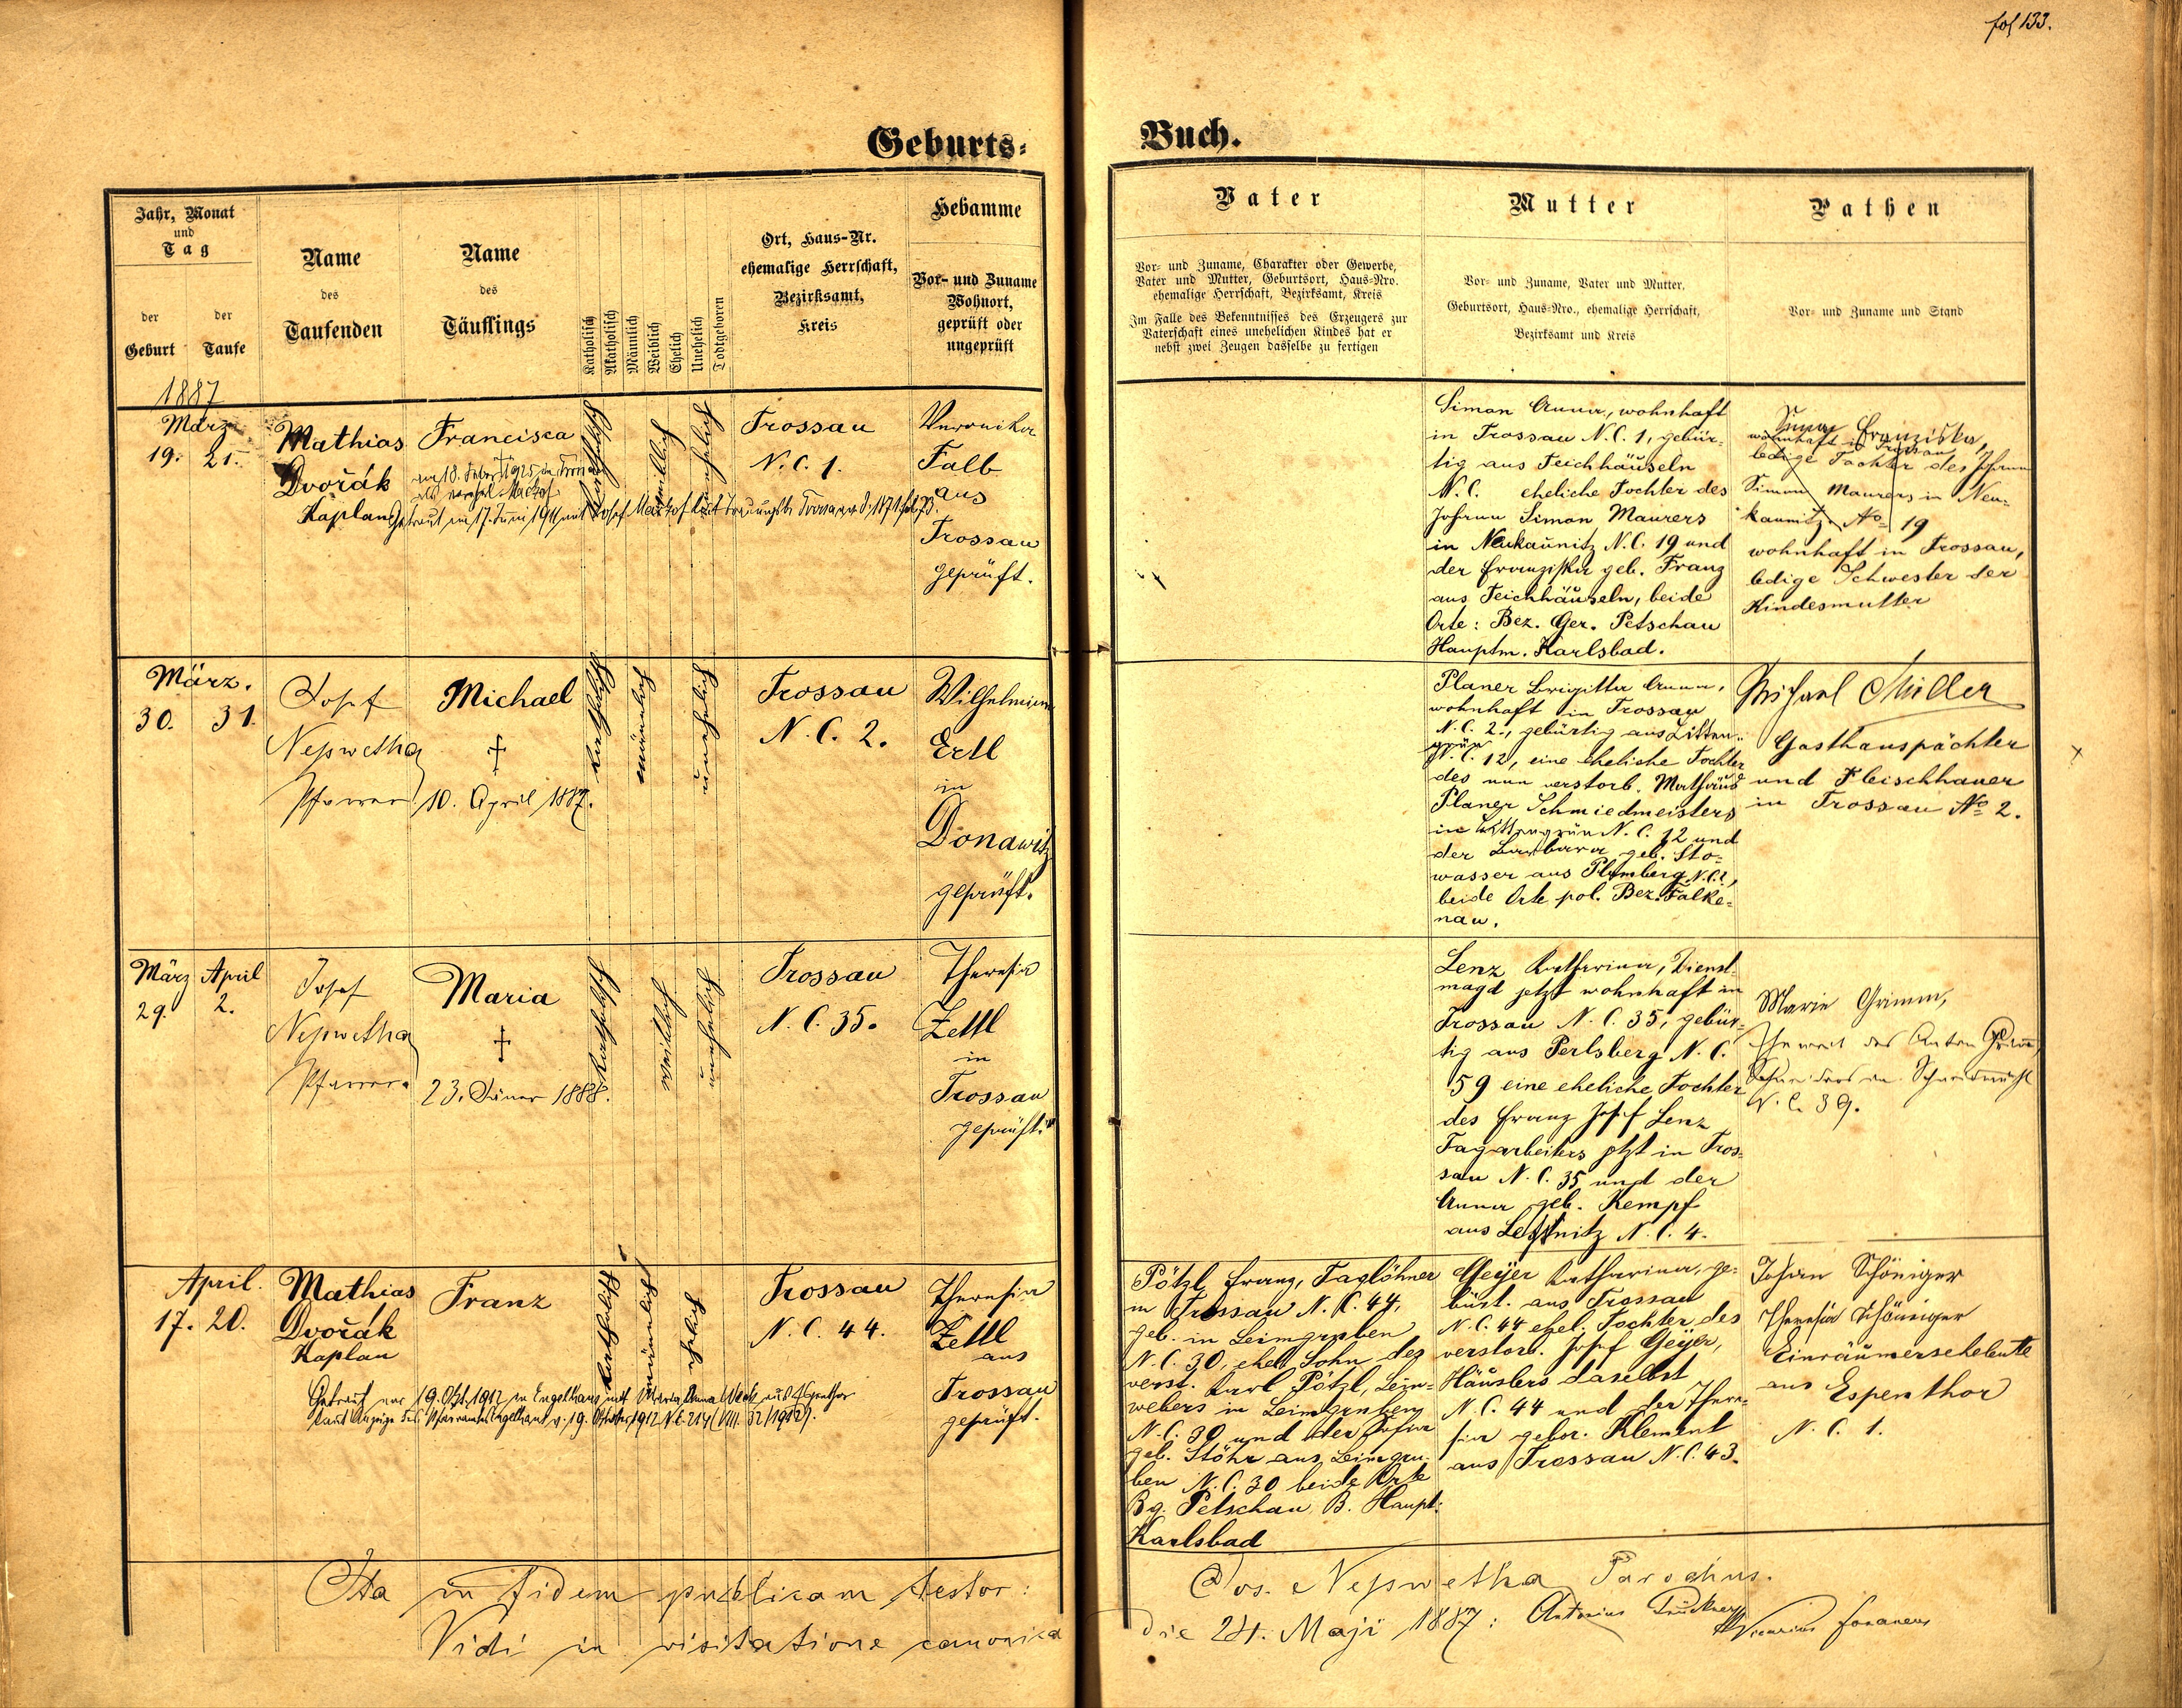 fol 133.
Geburts-
Buch.
Jahr, Monat
und
Tag
der
Geburt
der
Taufe
Name
des
Taufenden
Name
des
Täuflings
Katholisch
Akatholisch
Männlich
Weiblich
Ehelich
Unehelich
Todtgeboren
Ort, Haus-Nr.
ehemalige Herrschaft,
Bezirksamt,
Kreis
Hebamme
Vor- und Zuname
Wohnort,
geprüft oder
ungeprüft
Vater
Vor- und Zuname, Charakter oder Gewerbe,
Vater und Mutter, Geburtsort, Haus-Nro.
ehemalige Herrschaft, Bezirksamt, Kreis
Im Falle des Bekenntnisses des Erzeugers zur
Vaterschaft eines unehelichen Kindes hat er
nebst zwei Zeugen dasselbe zu fertigen
Mutter
Vor- und Zuname, Vater und Mutter,
Geburtsort, Haus-Nro., ehemalige Herrschaft,
Bezirksamt und Kreis
Pathen
Vor- und Zuname und Stand
1887
März
19. 21.
Mathias
Dvořák
Kaplan
Francisca
Getraut am 17. Juni 1911 mit Josef
katholisch
weiblich
unehelich
Trossau
N. C. 1.
Veronika
Falb
aus
Trossau
geprüft.
Simon Anna, wohnhaft
in Trossau N. C. 1, gebür-
tig aus Teichhäuseln
N. C. eheliche Tochter des
Johann Simon Maurers
in Neukaunitz N. C. 19 und
der Franziska geb. Franz
aus Teichhäuseln, beide
Orte: Bez. Ger. Petschau
Hauptm. Karlsbad.
Simon Franziska,
wohnhaft in Trossau
ledige Tochter des Johann
Simon Maurers in Neu-
kaunitz No 19
wohnhaft in Trossau,
ledige Schwester der
Kindesmutter
März.
30. 31.
Josef
Nepswetha
Pfarrer
Michael
†
10. April 1887.
katholisch
männlich
unehelich
Trossau
N. C. 2.
Wilhelmine
Ertl
in
Donawitz
geprüft.
Planer Brigitta Anna,
wohnhaft in Trossau
N. C. 2., gebürtig aus Litten-
grün
N. C. 12, eine eheliche Tochter
des nun verstorb. Mathäus
Planer Schmiedmeisters
in Littengrün N. C. 12 und
der Barbara geb. Sto-
wasser aus Plumberg N. C. 2,
beide Orte pol. Bez. Falke-
nau.
Michael Müller
Gasthauspächter
und Fleischhauer
in Trossau No 2.
März April
29. 2.
Josef
Nepswetha
Pfarrer
Maria
†
23. Jäner 1888.
katholisch
weiblich
unehelich
Trossau
N. C. 35.
Theresia
Zettl
in
Trossau
geprüft.
Lenz Katharina, Dienst-
magd jetzt wohnhaft in
Trossau N. C. 35, gebür-
tig aus Perlsberg N. C.
59 eine eheliche Tochter
des Franz Josef Lenz
Tagarbeiters jetzt in Tros-
sau N. C. 35 und der
Anna geb. Kempf
aus Lessnitz N. C. 4.
Marie Grimm,
Eheweib des Anton Grimm,
N. C. 39.
April.
17. 20.
Mathias
Dvořák
Kaplan
Franz
katholisch
männlich
ehelich
Trossau
N. C. 44.
Theresia
Zettl
aus
Trossau
geprüft.
Getraut am 19. Okt. 1912 in Engelhaus mit Maria Anna
laut Anzeige des Pfarramtes Engelhaus v. 19. Oktober 1912
Pötzl Franz, Taglöhner
in Trossau N. C. 44,
geb. in Leimgruben
N. C. 30, ehel. Sohn des
verst. Karl Pötzl, Lein-
webers in Leimgruben
N. C. 30 und der Josefa
geb. Stöhr aus Leimgru-
ben N. C. 30 beide Orte
Bg. Petschau B. Haupt:
Karlsbad
Geyer Katharina, ge-
bürt. aus Trossau
N. C. 44 ehel. Tochter des
verstorb. Josef Geyer,
Häuslers daselbst
N. C. 44 und der There-
sia gebor. Klement
aus Trossau N. C. 43.
Johan Schöniger
Theresia Schöniger
Einräumerseheleute
aus Espenthor
N. C. 1.
Ita in fidem publicam testor:
Jos. Nepswetha Parochus.
Vidi in visitatione canonica
die 24. Maji 1887: Antonius Pruckner
Vicarius foraneus